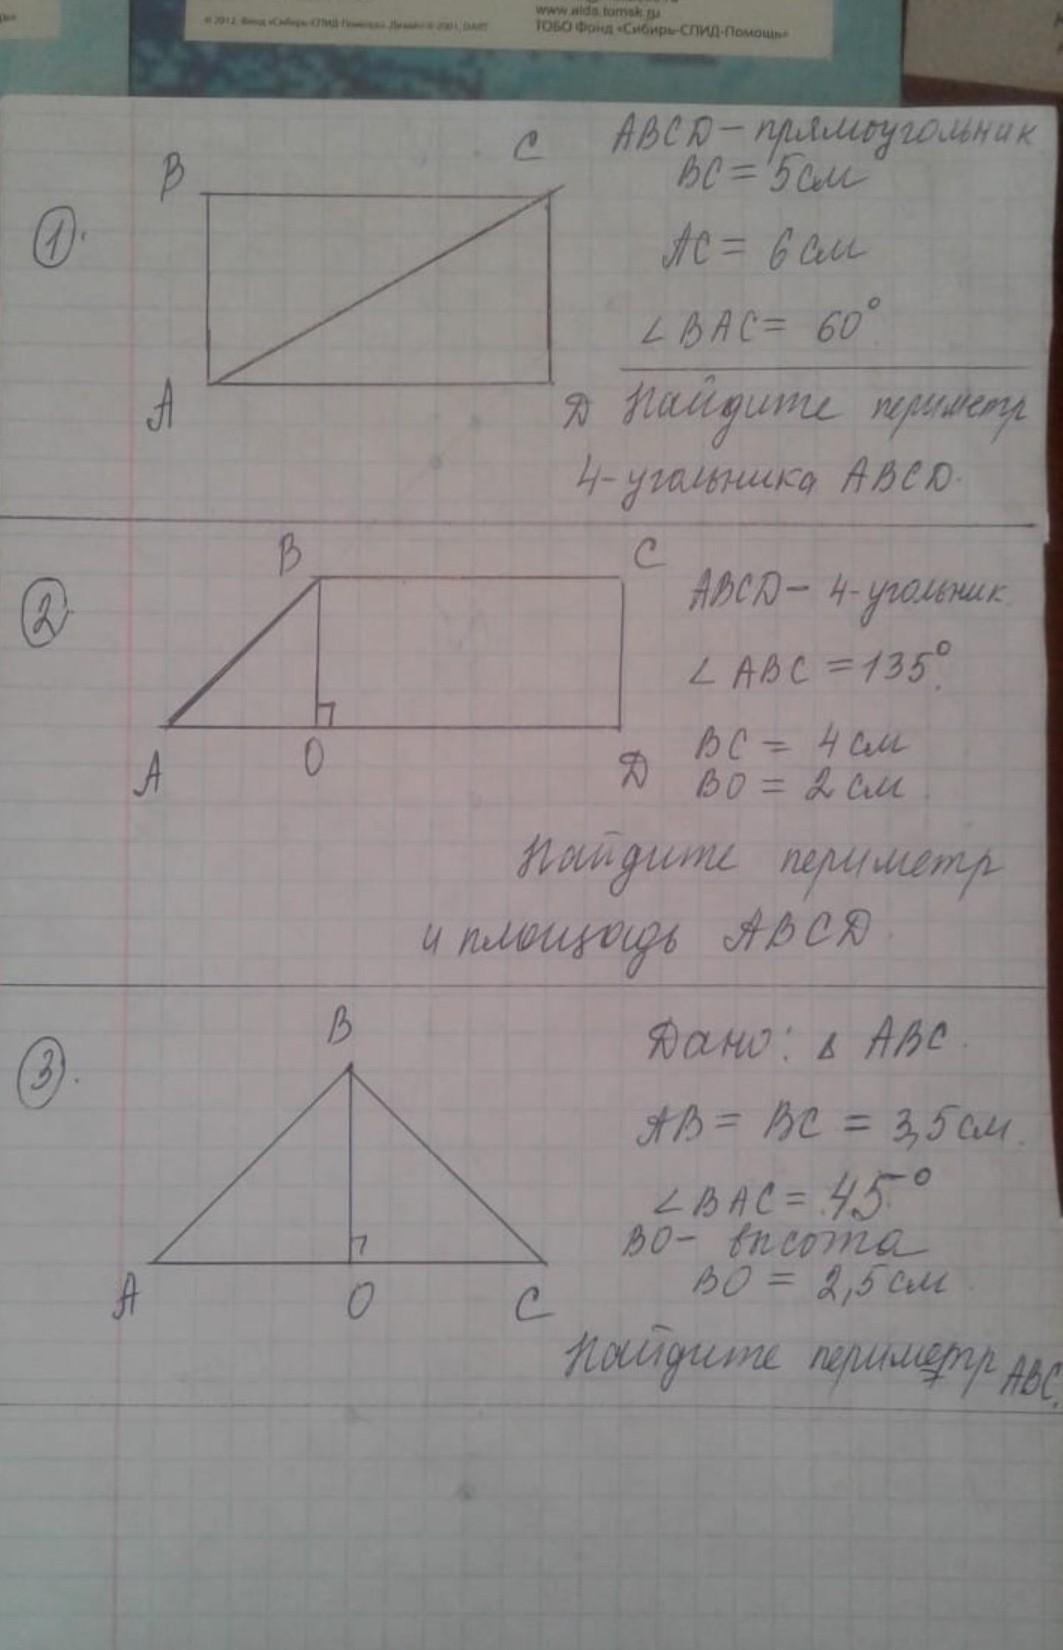 © 2012, Фонд «Сибирь-СПИД-Помощь». Дизайн © 2001, DART
www.aids.tomsk.ru
ТОБО Фонд «Сибирь-СПИД-Помощь»
1.
B
C
A
D
ABCD - прямоугольник
BC = 5 см
AC = 6 см
∠ BAC = 60°
Найдите периметр
4-угольника ABCD.
2
B
C
A
O
D
ABCD - 4-угольник.
∠ ABC = 135°.
BC = 4 см
BO = 2 см.
Найдите периметр
и площадь ABCD.
3.
B
A
O
C
Дано: Δ ABC.
AB = BC = 3,5 см.
∠ BAC = 45°
BO - высота
BO = 2,5 см.
Найдите периметр ABC.